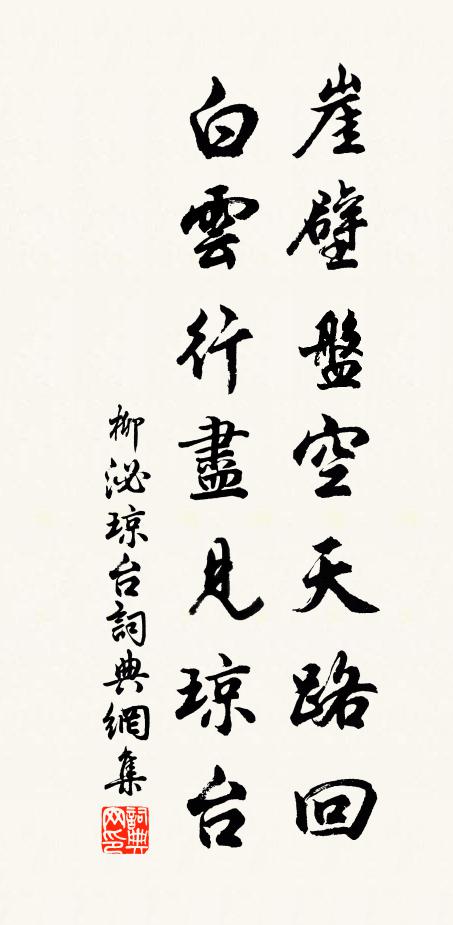 崖壁盤空天路回
白雲行盡見琼台
柳泌琼台詞典網集
詞典网印